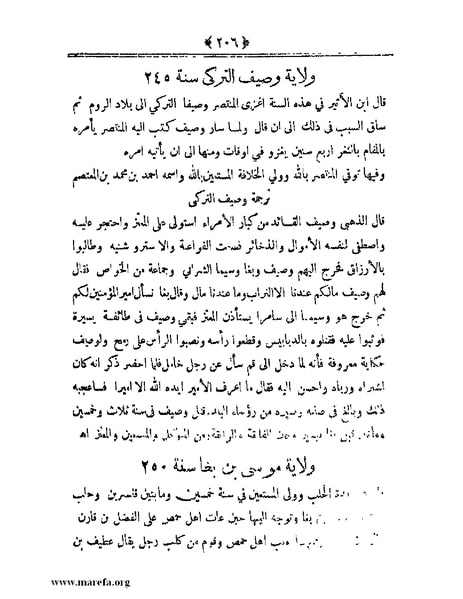 ﴿ ٢٠٦ ﴾
ولاية وصيف التركى سنة ٢٤٥
قال ابن الأثير في هذه السنة اغزى المنتصر وصيفا التركي الى بلاد الروم ثم
ساق السبب فى ذلك الى ان قال ولما سار وصيف كتب اليه المنتصر يأمره
بالمقام بالثغر اربع سنين يغزو في اوقات ومنها الى ان يأتيه امره
وفيها توفي المنتصر بالله وولي الخلافة المستعين بالله واسمه احمد بن محمد بن المعتصم
ترجمة وصيف التركى
قال الذهبي وصيف القائد من كبار الأمراء استولى على المعتز واحتجر عليه
واصطفى لنفسه الأموال والذخائر فشغبت الفراعنة والاسترو شنيه وطالبوا
بالأرزاق فخرج اليهم وصيف وبغا وسيما الشرابي وجماعة من الخواص فقال
لهم وصيف مالكم عندنا الا التراب وما عندنا مال وقال بغا نسأل امير المؤمنين لكم
ثم خرج هو وسيما الى سامرا يستأذن المعتز فبقي وصيف في طائفة يسيرة
فوثبوا عليه فقتلوه بالدبابيس وقطعوا رأسه ونصبوا الرأس على رمح ولوصيف
حكاية معروفة فأنه لما دخل الى قم سأل عن رجل خامل فلما احضر ذكر انه كان
اشتراه ورباه واحسن اليه فقال ما اعرف الأمير ايده الله الا اميرا فاعجبه
ذلك وبالغ في صلته وصيره من رؤساء البلد. قتل وصيف في سنة ثلاث وخمسين
والمستعين والمعتز اه
ولاية موسى بن بغا سنة ٢٥٠
الحلب وولى المستعين في سنة خمسين ومابتين قنسرين وحلب
بغا وتوجه اليها حين عاث اهل حمص على الفضل بن قارن
اهل حمص وقوم من كلب رجل يقال عطيف بن
www.marefa.org